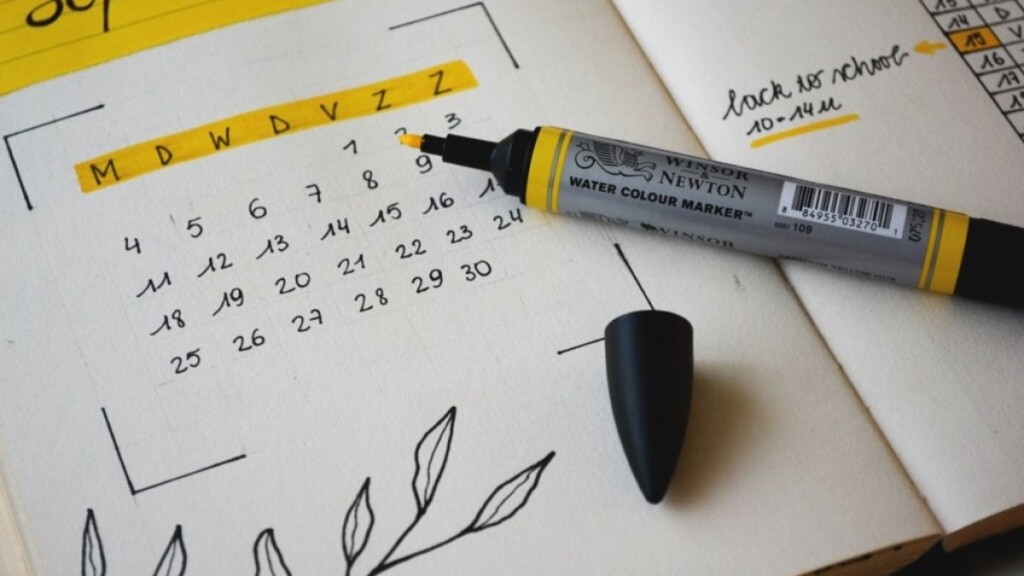 Sep
M D W D V Z Z
1 2 3
4 5 6 7 8 9
11 12 13 14 15 16
18 19 20 21 22 23 24
25 26 27 28 29 30
back to school
10-14u
14 D
15 V
16
17
WINSOR
&
NEWTON
WATER COLOUR MARKER™
8 84955 03270 1
0001 109
WINSOR